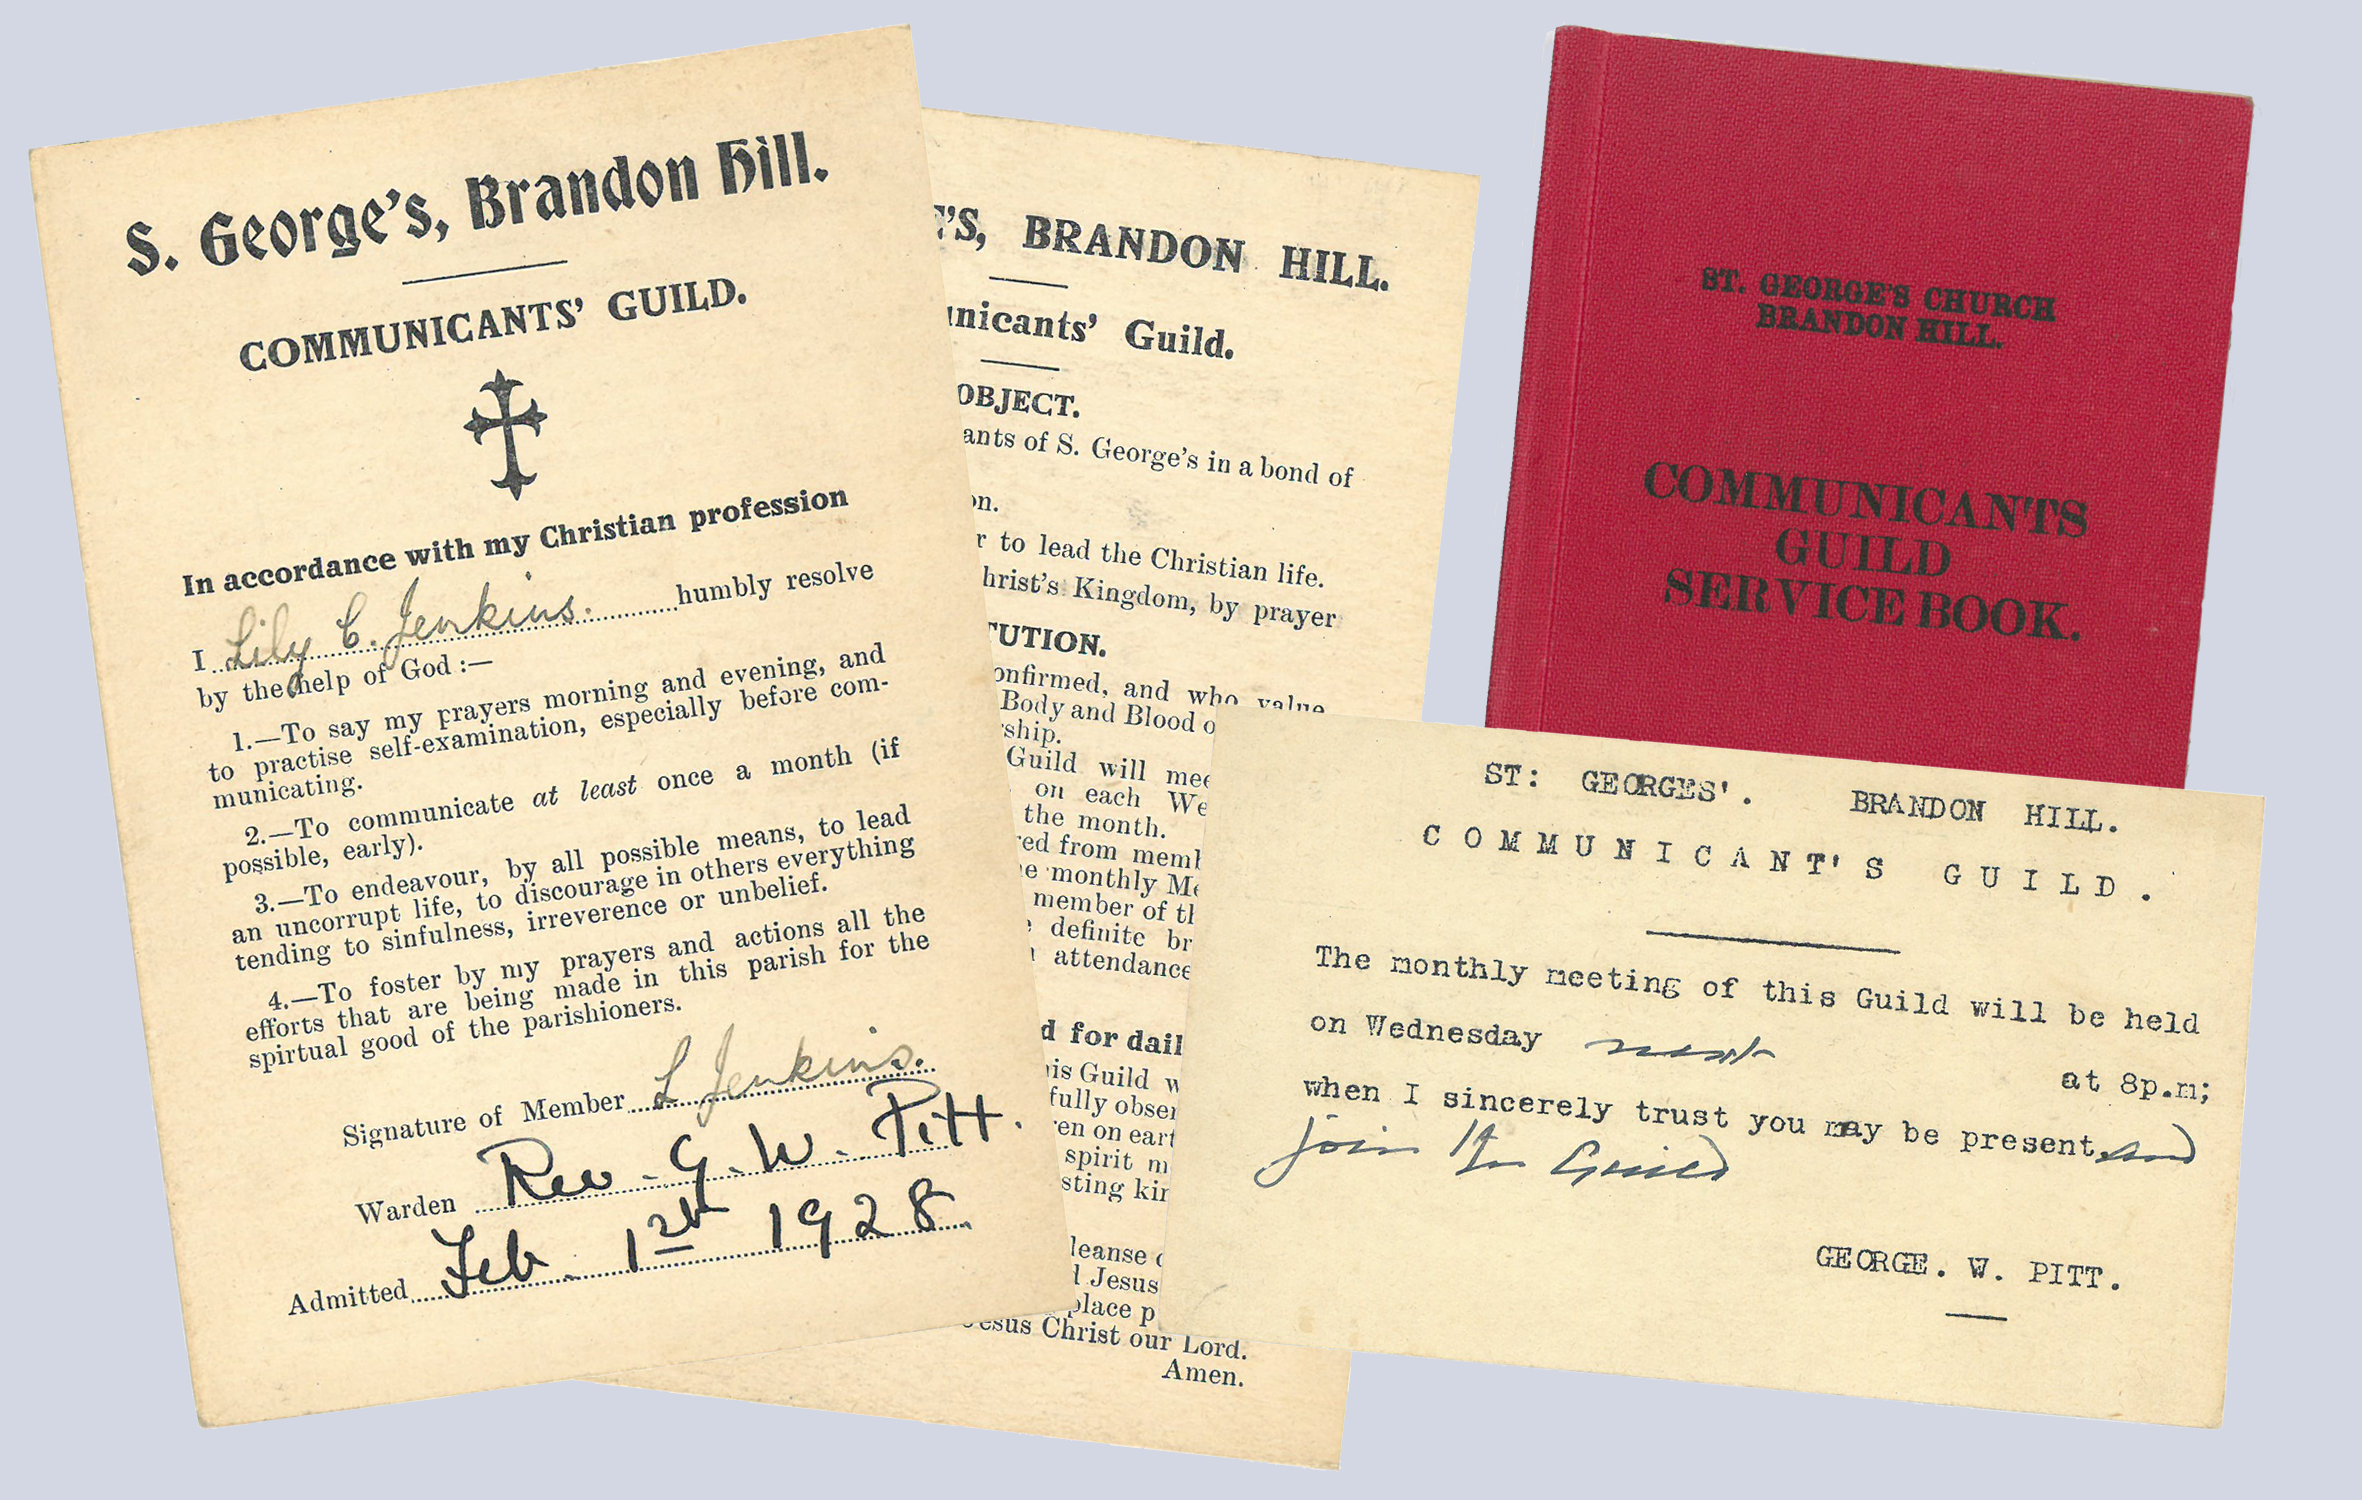 S. George's, Brandon Hill.
COMMUNICANTS' GUILD.
In accordance with my Christian profession
I Lily C. Jenkins. humbly resolve
by the help of God :—
1.—To say my prayers morning and evening, and
to practise self-examination, especially before com-
municating.
2.—To communicate at least once a month (if
possible, early).
3.—To endeavour, by all possible means, to lead
an uncorrupt life, to discourage in others everything
tending to sinfulness, irreverence or unbelief.
4.—To foster by my prayers and actions all the
efforts that are being made in this parish for the
spirtual good of the parishioners.
Signature of Member L Jenkins.
Warden Rev. G. W. Pitt.
Admitted Feb. 1st 1928
'S, BRANDON HILL.
unicants' Guild.
OBJECT.
ants of S. George's in a bond of
on.
r to lead the Christian life.
hrist's Kingdom, by prayer
TUTION.
onfirmed, and who value
Body and Blood o
ship.
Guild will mee
on each We
the month.
red from memb
e monthly Me
member of th
definite br
attendance
d for dail
is Guild w
fully obser
en on eart
spirit m
sting kin
leanse o
d Jesus
place p
Jesus Christ our Lord.
Amen.
ST. GEORGE'S CHURCH
BRANDON HILL.
COMMUNICANTS
GUILD
SERVICE BOOK.
ST: GEORGES'. BRANDON HILL.
COMMUNICANT'S GUILD.
The monthly meeting of this Guild will be held
on Wednesday next at 8p.m;
when I sincerely trust you may be present and
join the Guild
GEORGE. W. PITT.